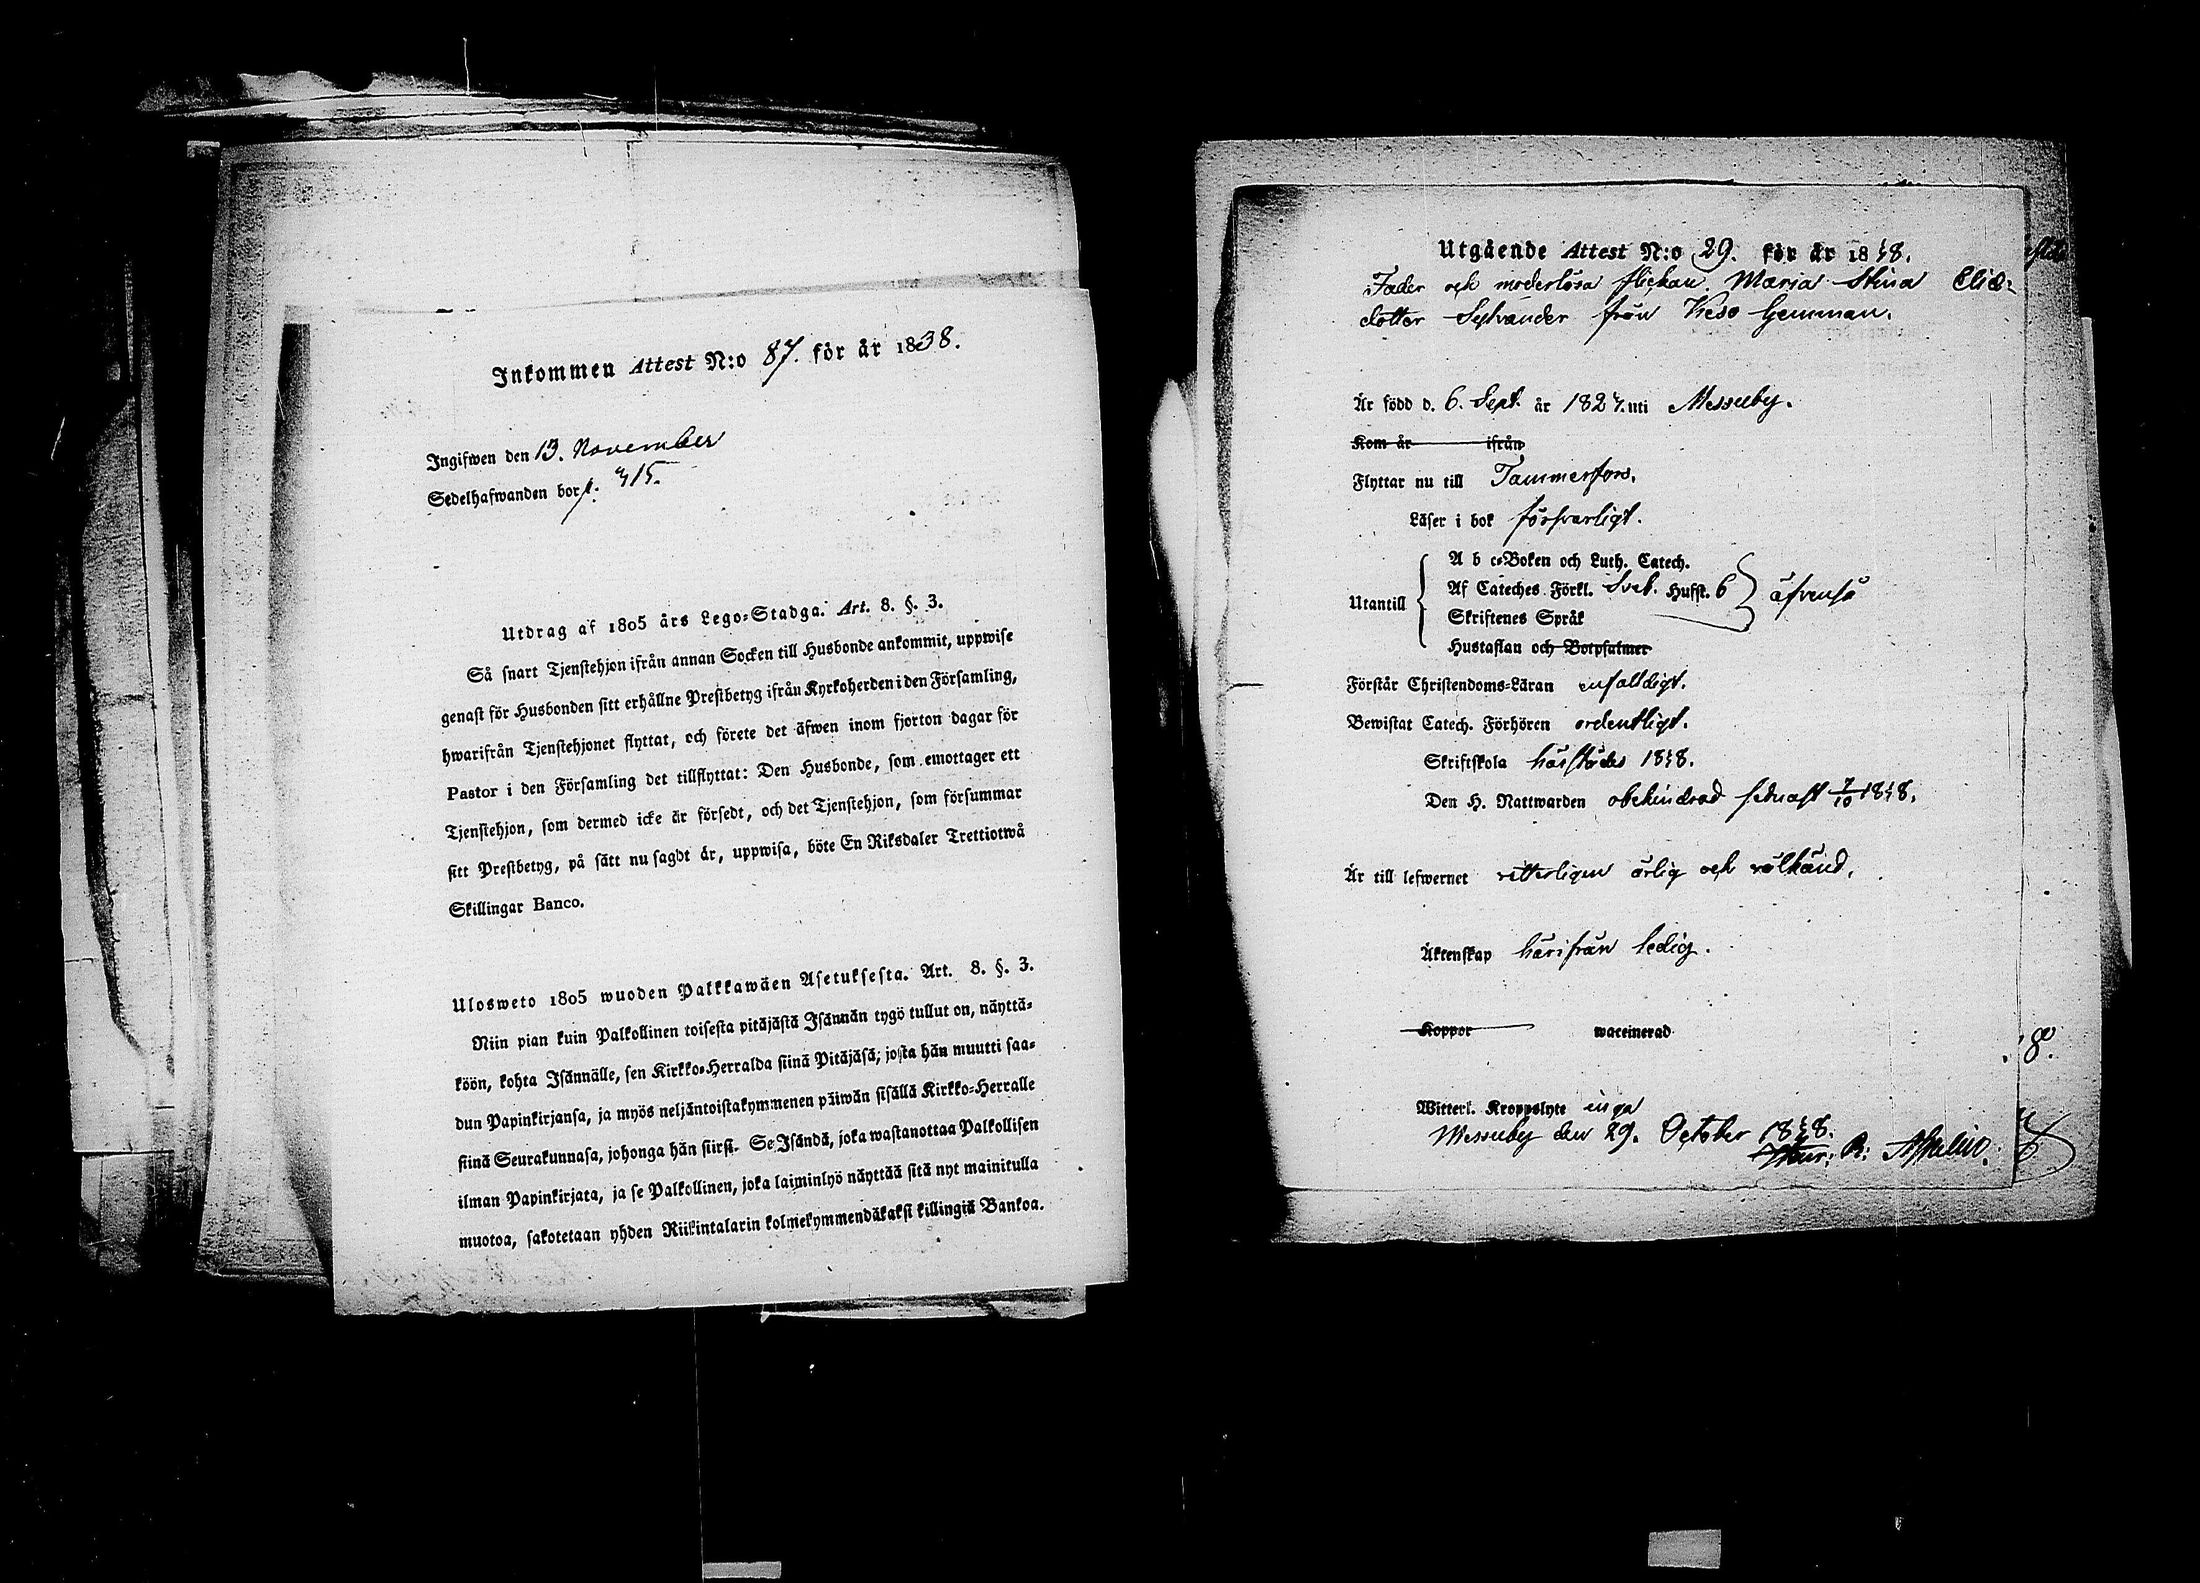 Inkommen Attest N:o 87. för år 1838.
Ingifwen den 13. November
Sedelhafwanden bor p. 415.
Utdrag af 1805 års Lego-Stadga. Art. 8. §. 3.
Så snart Tjenstehjon ifrån annan Socken till Husbonde ankommit, uppwise
genast för Husbonden sitt erhållne Prestbetyg ifrån Kyrkoherden i den Församling,
hwarifrån Tjenstehjonet flyttat, och förete det äfwen inom fjorton dagar för
Pastor i den Församling det tillflyttat: Den Husbonde, som emottager ett
Tjenstehjon, som dermed icke är försedt, och det Tjenstehjon, som försummar
sitt Prestbetyg, på sätt nu sagdt är, uppwisa, böte En Riksdaler Trettiotwå
Skillingar Banco.
Ulosweto 1805 wuoden Palkkawäen Asetuksesta. Art. 8. §. 3.
Niin pian kuin Palkollinen toisesta pitäjästä Isännän tygö tullut on, näyttä-
köön, kohta Isännälle, sen Kirkko-Herralda siinä Pitäjäsä; josta hän muutti saa-
dun Papinkirjansa, ja myös neljäntoistakymmenen päiwän sisällä Kirkko-Herralle
siinä Seurakunnasa, johonga hän siirsi. Se Isändä, joka wastanottaa Palkollisen
ilman Papinkirjata, ja se Palkollinen, joka laiminlyö näyttää sitä nyt mainitulla
muotoa, sakotetaan yhden Riikintalarin kolmekymmendäkaksi killingiä Bankoa.
Utgående Attest N:o 29. för år 1848.
Fader och moderlösa flickan Maria Stina Elias-
dotter Sylvander från Keso Hemman.
Är född d. 6. Sept. år 1827. uti Messuby.
Kom år ifrån
Flyttar nu till Tammerfors.
Läser i bok försvarligt.
Utantill
A b c-Boken och Luth. Catech.
Af Cateches. Förkl. Sveb. Hufst. 6
Skriftenes Språk
Hustaflan och Botpsalmer
äfvenså
Förstår Christendoms-Läran enfaldigt.
Bewistat Catech. Förhören ordentligt.
Skriftskola härstädes 1848.
Den H. Nattwarden obehindrad senast 7/10 1848.
Är till lefwernet vitterligen ärlig och välkänd.
Äktenskap härifrån ledig.
Koppor waccinerad
8.
Witterl. Kroppslyte inga
Messuby den 29. October 1848.